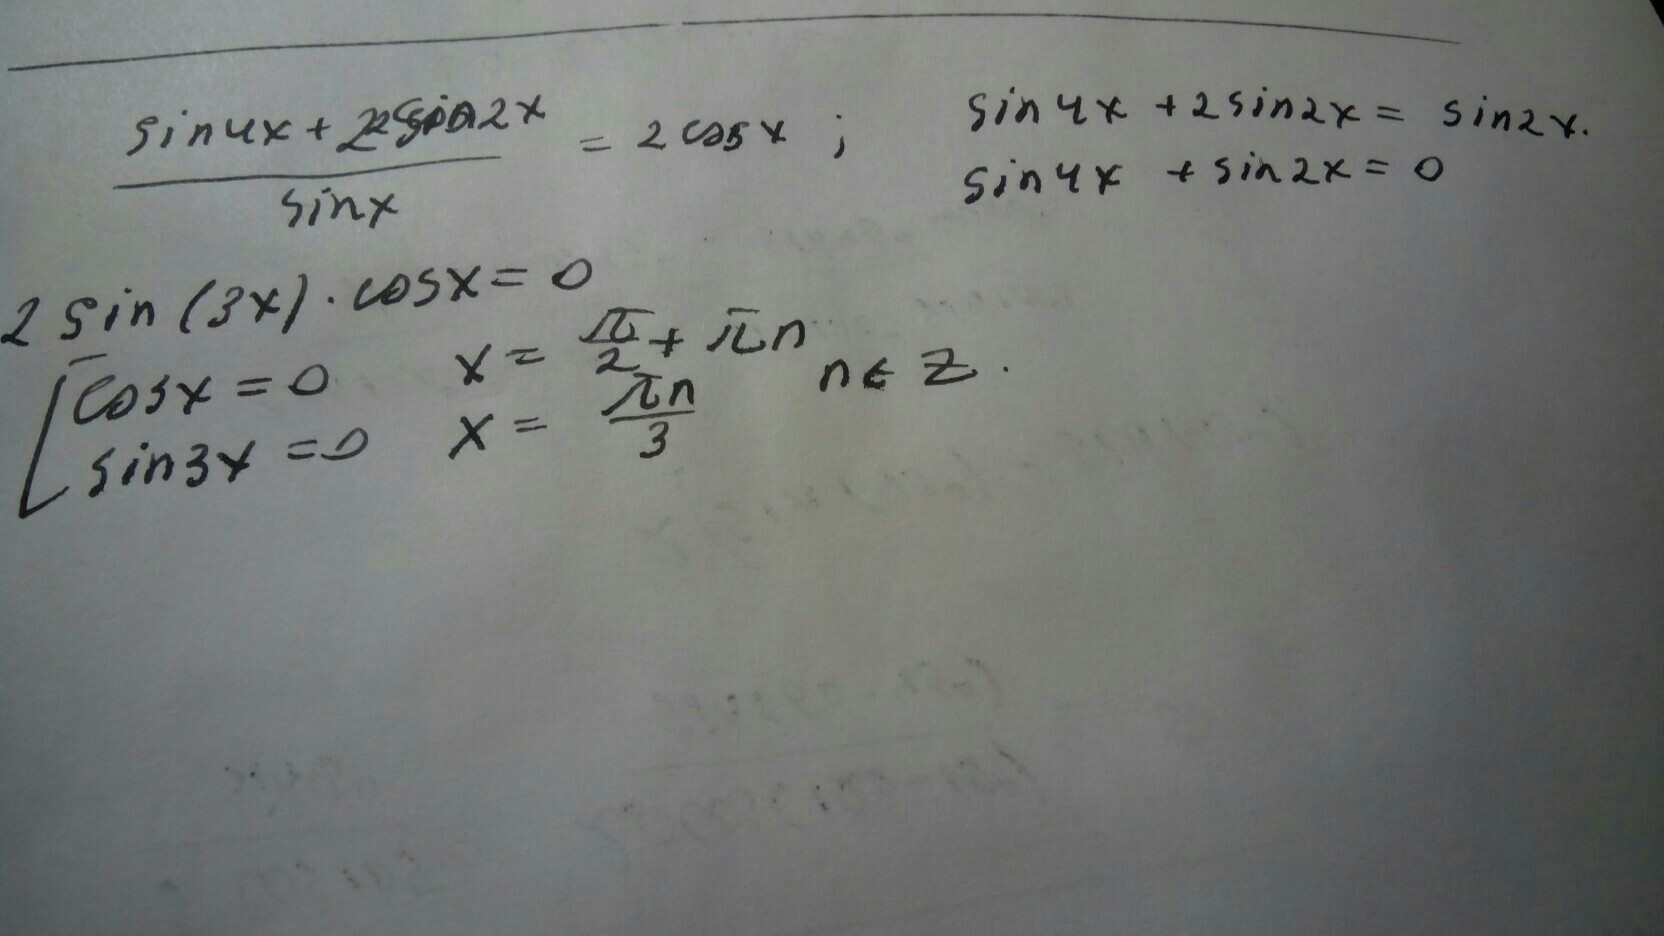 (sin4x + 2sin2x)/sinx = 2cosx ;
sin4x + 2sin2x = sin2x.
sin4x + sin2x = 0
2 sin(3x)·cosx = 0
[cosx = 0 x = π/2 + πn
sin3x = 0 x = πn/3 n ∈ Z.